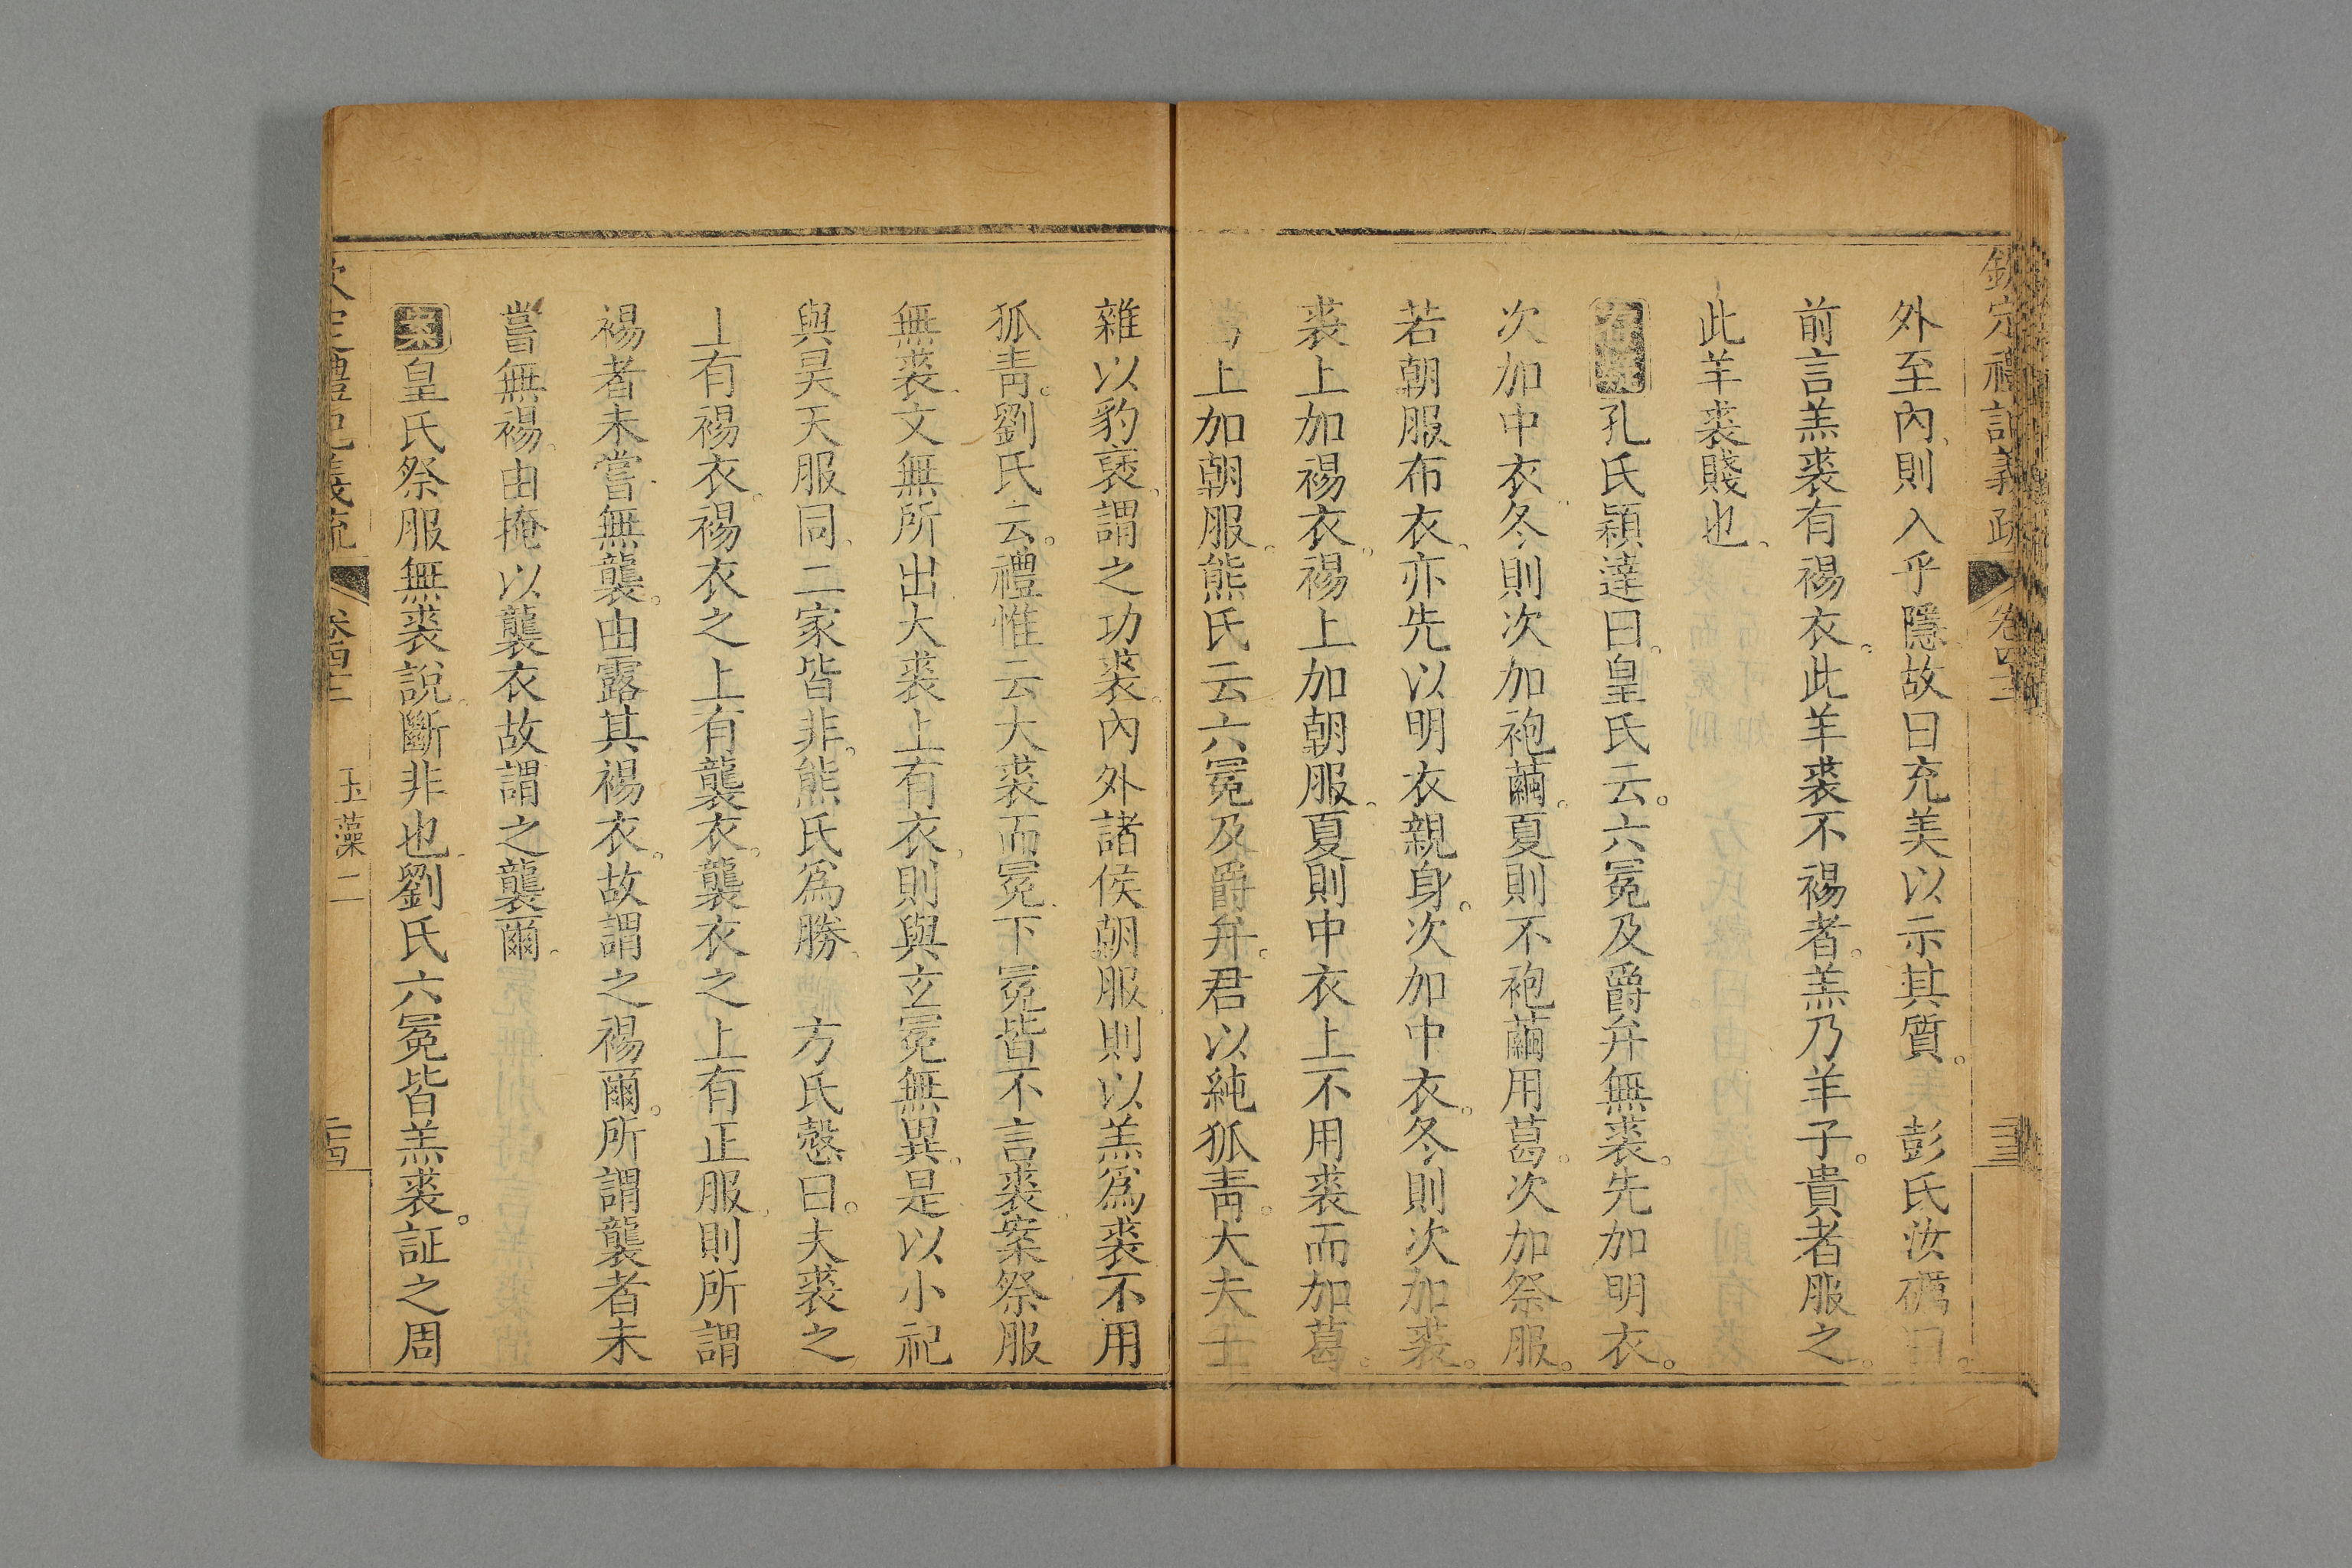 欽定禮記義疏 卷四十二
外至內、則入乎隱、故曰充美以示其質。 彭氏汝礪曰。
前言羔裘有裼衣。此羊裘不裼者。羔乃羊子。貴者服之。
此羊裘賤也。
存疑 孔氏穎達曰。皇氏云。六冕及爵弁無裘。先加明衣。
次加中衣。冬則次加袍繭。夏則不袍繭用葛。次加祭服。
若朝服布衣。亦先以明衣親身。次加中衣。冬則次加裘。
裘上加裼衣。裼上加朝服。夏則中衣上不用裘而加葛。
葛上加朝服。熊氏云六冕及爵弁。君以純狐青。大夫士
雜以豹褎。謂之功裘。內外諸侯朝服則以羔爲裘不用
狐靑。劉氏云。禮惟云大裘而冕。下冕皆不言裘。案祭服
無裘。文無所出。大裘上有衣。則與玄冕無異。是以小祀
與昊天服同、二家皆非。熊氏爲勝。 方氏愨曰。夫裘之
上有裼衣。裼衣之上有襲衣。襲衣之上有正服。則所謂
裼者未嘗無襲。由露其裼衣。故謂之裼爾。所謂襲者未
嘗無裼。由掩以襲衣故謂之襲爾。
案 皇氏祭服無裘說。斷非也。劉氏六冕皆羔裘。証之周
欽定禮記義疏 卷四十二 玉藻二